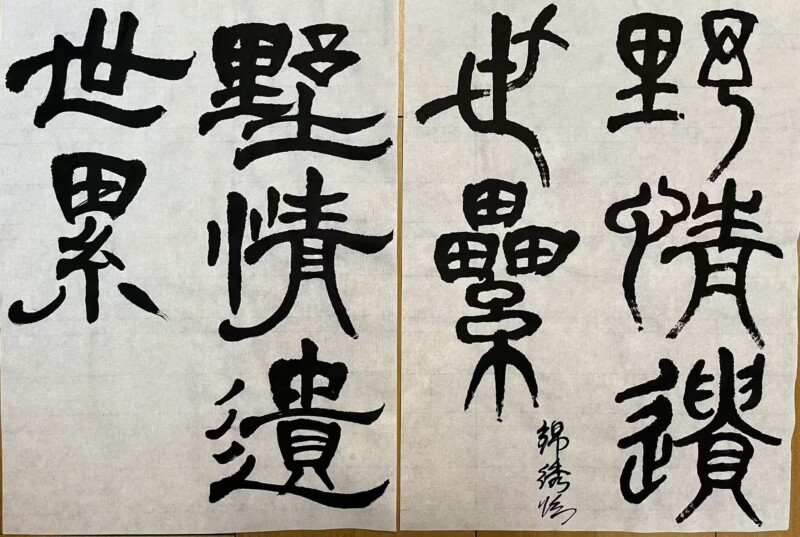 野情遺
世纍
錦綉臨
墅情遺
世累